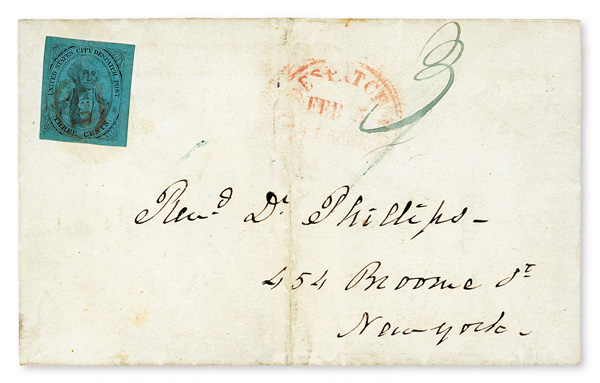 UNITED STATES CITY DESPATCH POST
THREE CENTS.
DESPATCH
FEB
3
Revd Dr Phillips -
454 Broome St
New-york.